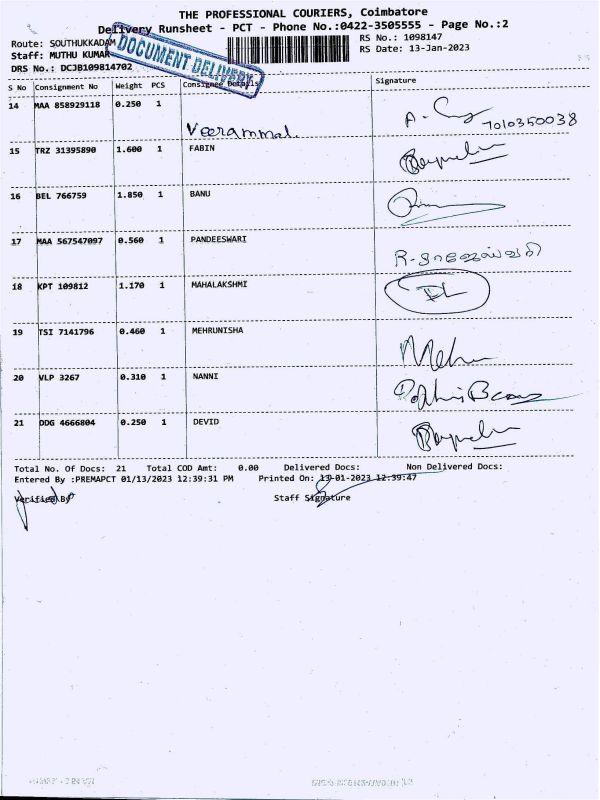 THE PROFESSIONAL COURIERS, Coimbatore
Delivery Runsheet - PCT - Phone No.:0422-3505555 - Page No.:2
Route: SOUTHUKKADAM
RS No.: 1098147
Staff: MUTHU KUMAR
RS Date: 13-Jan-2023
DRS No.: DCJB109814702
DOCUMENT DELIVERY
S No Consignment No Weight PCS Consignee Details Signature
14 MAA 858929118 0.250 1
Veerammal. 7010350038
15 TRZ 31395890 1.600 1 FABIN
16 BEL 766759 1.850 1 BANU
17 MAA 567547097 0.560 1 PANDEESWARI
18 KPT 109812 1.170 1 MAHALAKSHMI
DL
19 TSI 7141796 0.460 1 MEHRUNISHA
20 VLP 3267 0.310 1 NANNI
21 DDG 4666804 0.250 1 DEVID
Total No. Of Docs: 21 Total COD Amt: 0.00 Delivered Docs: Non Delivered Docs:
Entered By :PREMAPCT 01/13/2023 12:39:31 PM Printed On: 13-01-2023 12:39:47
Verified By Staff Signature